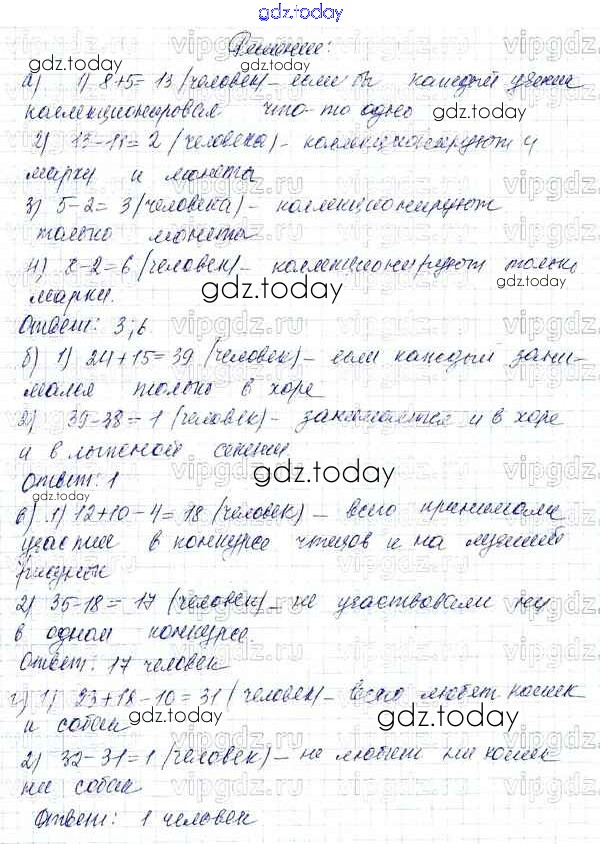 gdz.today
Решение:
а) 1) 8+5=13 (человек) – если бы каждый ученик
коллекционировал что-то одно
gdz.today
2) 13-11=2 (человека) – коллекционируют и
марки и монеты
3) 5-2=3 (человека) – коллекционируют
только монеты
4) 8-2=6 (человек) – коллекционируют только
марки.
gdz.today
Ответ: 3; 6
б) 1) 24+15=39 (человек) – если каждый зани-
мался только в хоре
2) 39-38=1 (человек) – занимаются и в хоре
и в лыжной секции
Ответ: 1
gdz.today
gdz.today
в) 1) 12+10-4=18 (человек) – всего принимали
участие в конкурсе чтецов и на лучший
рисунок
gdz.today
2) 35-18=17 (человек) – не участвовали ни
в одном конкурсе.
Ответ: 17 человек
gdz.today
г) 1) 23+18-10=31 (человек) – всего любят кошек
и собак
gdz.today
gdz.today
2) 32-31=1 (человек) – не любит ни кошек
ни собак
gdz.today
gdz.today
Ответ: 1 человек